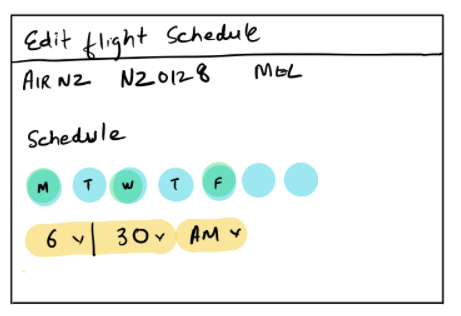 Edit flight Schedule
AIR NZ NZ0128 MEL
Schedule
M T W T F
6 30 AM